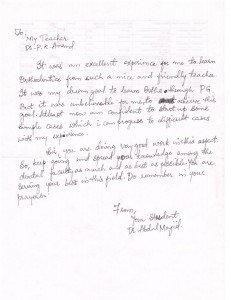 To,
My Teacher
Dr. P.K. Anand
It was an excellent experience for me to learn
Orthodontics from such a nice and friendly teacher
It was my dream goal to learn Ortho through PG
But it was unbelievable for me to achieve this
goal. Atleast now am confident to start up some
simple cases which i can progress to difficult cases
with my experience.
Sir, you are doing very good work in this aspect.
So, keep going and spread your knowledge among the
dental faculty as much and as best as possible. You are
serving your best in this field. Do remember in your
prayers.
From,
Your Student,
Dr. Abdul Majid.